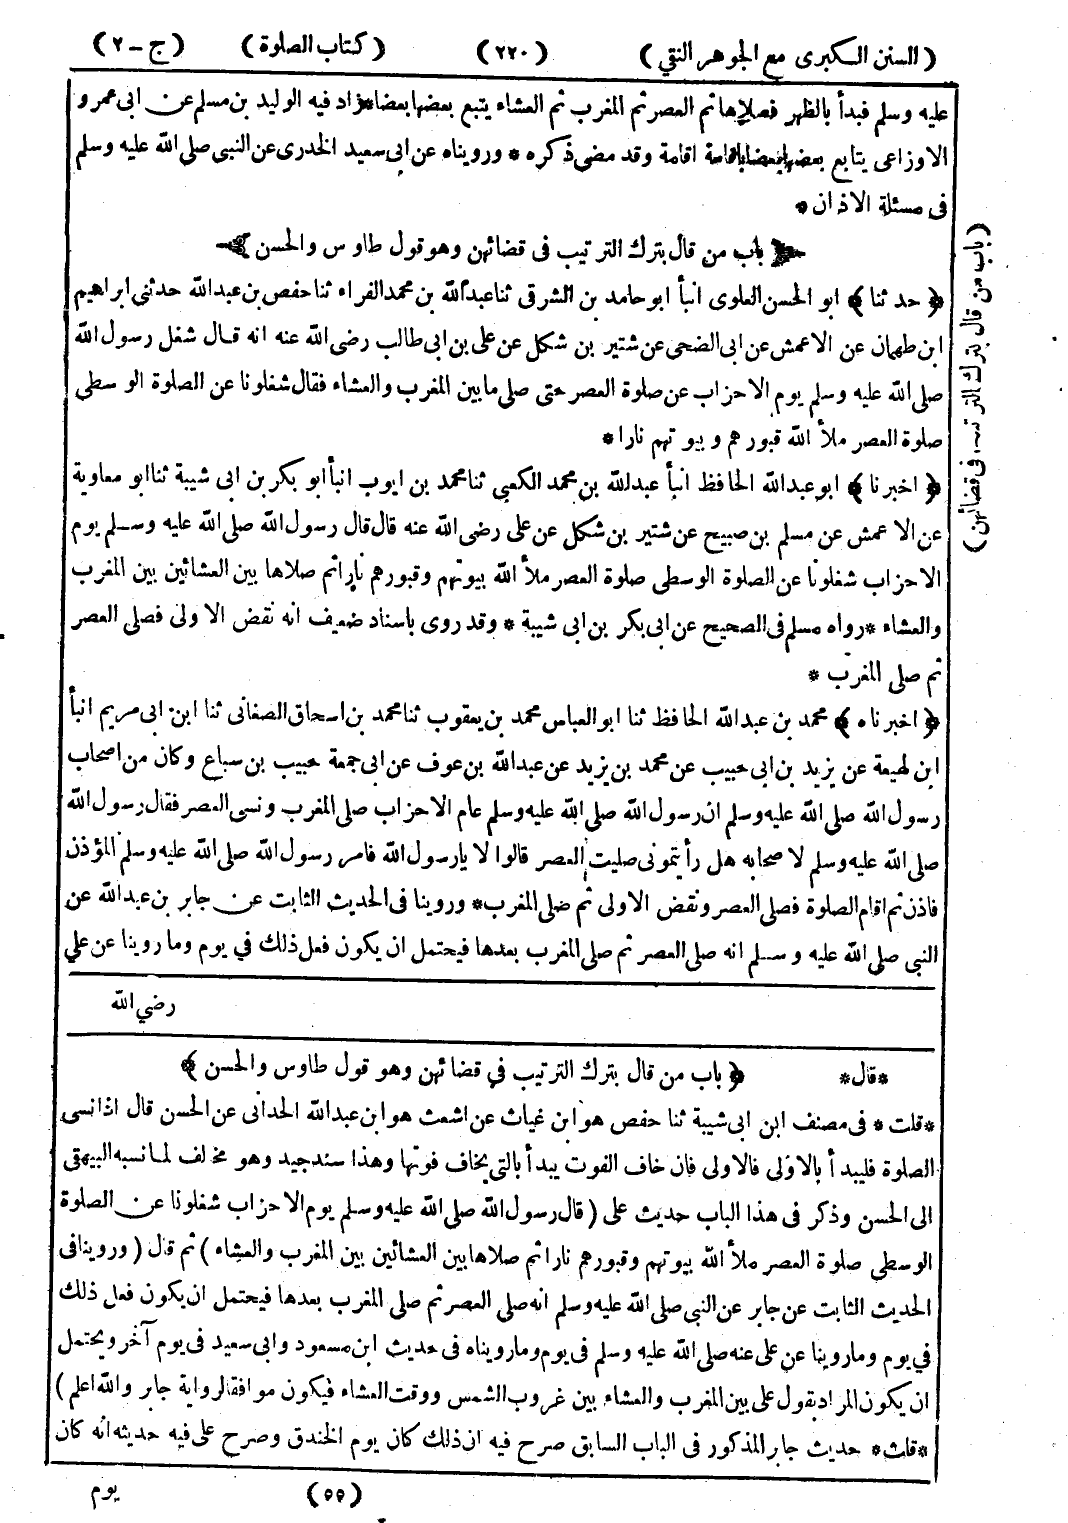 ( السنن الكبرى مع الجوهر النقي ) (٢٢٠) ( كتاب الصلوة ) ( ج - ٢ )
عليه وسلم فبدأ بالظهر فصلاها ثم العصر ثم المغرب ثم العشاء يتبع بعضها بعضا * زاد فيه الوليد بن مسلم عن ابى عمرو
الاوزاعى يتابع بعضها بعضا باقامة اقامة وقد مضى ذكره * ورويناه عن ابى سعيد الخدرى عن النبى صلى الله عليه وسلم
فى مسئلة الاذان *
باب من قال بترك الترتيب فى قضائهن وهو قول طاوس والحسن
( باب من قال بترك الترتيب فى قضائهن )
﴿ حدثنا ﴾ ابو الحسن العلوى انبأ ابو حامد بن الشرقى ثنا عبدالله بن محمد الفراء ثنا حفص بن عبدالله حدثنى ابراهيم
ابن طهمان عن الاعمش عن ابى الضحى عن شتير بن شكل عن على بن ابى طالب رضى الله عنه انه قال شغل رسول الله
صلى الله عليه وسلم يوم الاحزاب عن صلوة العصر حتى صلى ما بين المغرب والعشاء فقال شغلونا عن الصلوة الوسطى
صلوة العصر ملأ الله قبورهم وبيوتهم نارا *
﴿ اخبرنا ﴾ ابو عبدالله الحافظ انبأ عبدالله بن محمد الكعبى ثنا محمد بن ايوب انبأ ابو بكر بن ابى شيبة ثنا ابو معاوية
عن الاعمش عن مسلم بن صبيح عن شتير بن شكل عن على رضى الله عنه قال قال رسول الله صلى الله عليه وسلم يوم
الاحزاب شغلونا عن الصلوة الوسطى صلوة العصر ملأ الله بيوتهم وقبورهم نارا ثم صلاها بين العشائين بين المغرب
والعشاء * رواه مسلم فى الصحيح عن ابى بكر بن ابى شيبة * وقد روى باسناد ضعيف انه نقض الاولى فصلى العصر
ثم صلى المغرب *
﴿ اخبرناه ﴾ محمد بن عبدالله الحافظ ثنا ابو العباس محمد بن يعقوب ثنا محمد بن اسحاق الصغانى ثنا ابن ابى مريم انبأ
ابن لهيعة عن يزيد بن ابى حبيب عن محمد بن يزيد عن عبدالله بن عوف عن ابى جمعة حبيب بن سباع وكان من اصحاب
رسول الله صلى الله عليه وسلم ان رسول الله صلى الله عليه وسلم عام الاحزاب صلى المغرب ونسى العصر فقال رسول الله
صلى الله عليه وسلم لاصحابه هل رأيتمونى صليت العصر قالوا لا يا رسول الله فامر رسول الله صلى الله عليه وسلم المؤذن
فاذن ثم اقام الصلوة فصلى العصر ونقض الاولى ثم صلى المغرب * وروينا فى الحديث الثابت عن جابر بن عبدالله عن
النبى صلى الله عليه وسلم انه صلى العصر ثم صلى المغرب بعدها فيحتمل ان يكون فعل ذلك في يوم وما روينا عن علي
رضي الله
*قال* ﴿ باب من قال بترك الترتيب في قضائهن وهو قول طاوس والحسن ﴾
*قلت* فى مصنف ابن ابى شيبة ثنا حفص هو ابن غياث عن اشعث هو ابن عبدالله الحدانى عن الحسن قال اذا نسى
الصلوة فليبدأ بالاولى فالاولى فان خاف الفوت يبدأ بالتى يخاف فوتها وهذا سند جيد وهو مخالف لما نسبه البيهقى
الى الحسن وذكر فى هذا الباب حديث على ( قال رسول الله صلى الله عليه وسلم يوم الاحزاب شغلونا عن الصلوة
الوسطى صلوة العصر ملأ الله بيوتهم وقبورهم نارا ثم صلاها بين العشائين بين المغرب والعشاء ) ثم قال ( وروينا فى
الحديث الثابت عن جابر عن النبى صلى الله عليه وسلم انه صلى العصر ثم صلى المغرب بعدها فيحتمل ان يكون فعل ذلك
في يوم وما روينا عن على عنه صلى الله عليه وسلم فى يوم وما رويناه فى حديث ابن مسعود وابى سعيد فى يوم آخر ويحتمل
ان يكون المراد بقول على بين المغرب والعشاء بين غروب الشمس ووقت العشاء فيكون موافقا لرواية جابر والله اعلم )
*قلت* حديث جابر المذكور فى الباب السابق صرح فيه ان ذلك كان يوم الخندق وصرح على فيه حديثه انه كان
(٥٥) يوم